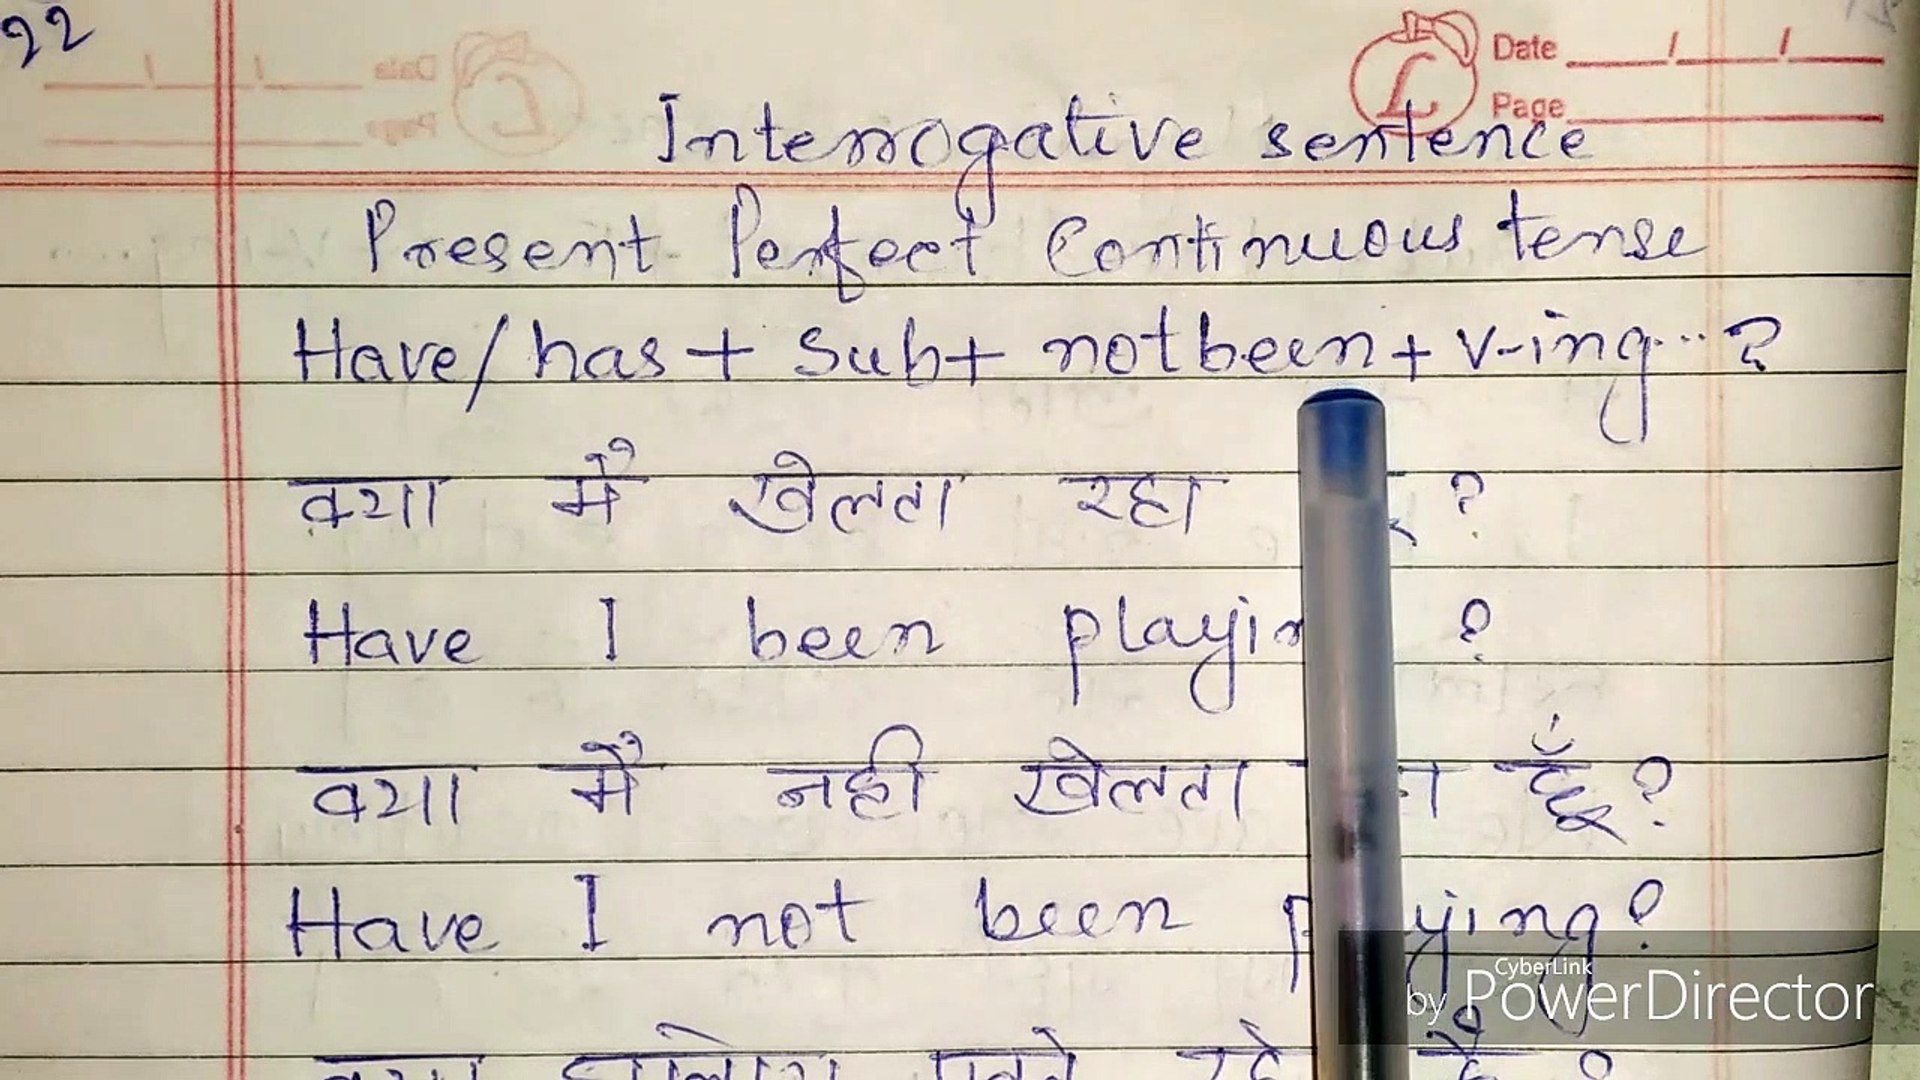 22
Date
Page
Interrogative sentence
Present Perfect Continuous tense
Have/has + Sub + not been + v-ing...?
क्या मैं खेलता रहा ?
Have I been ?
क्या मैं नही खेलता हूँ?
Have I not been
CyberLink
by PowerDirector
क्या रहे